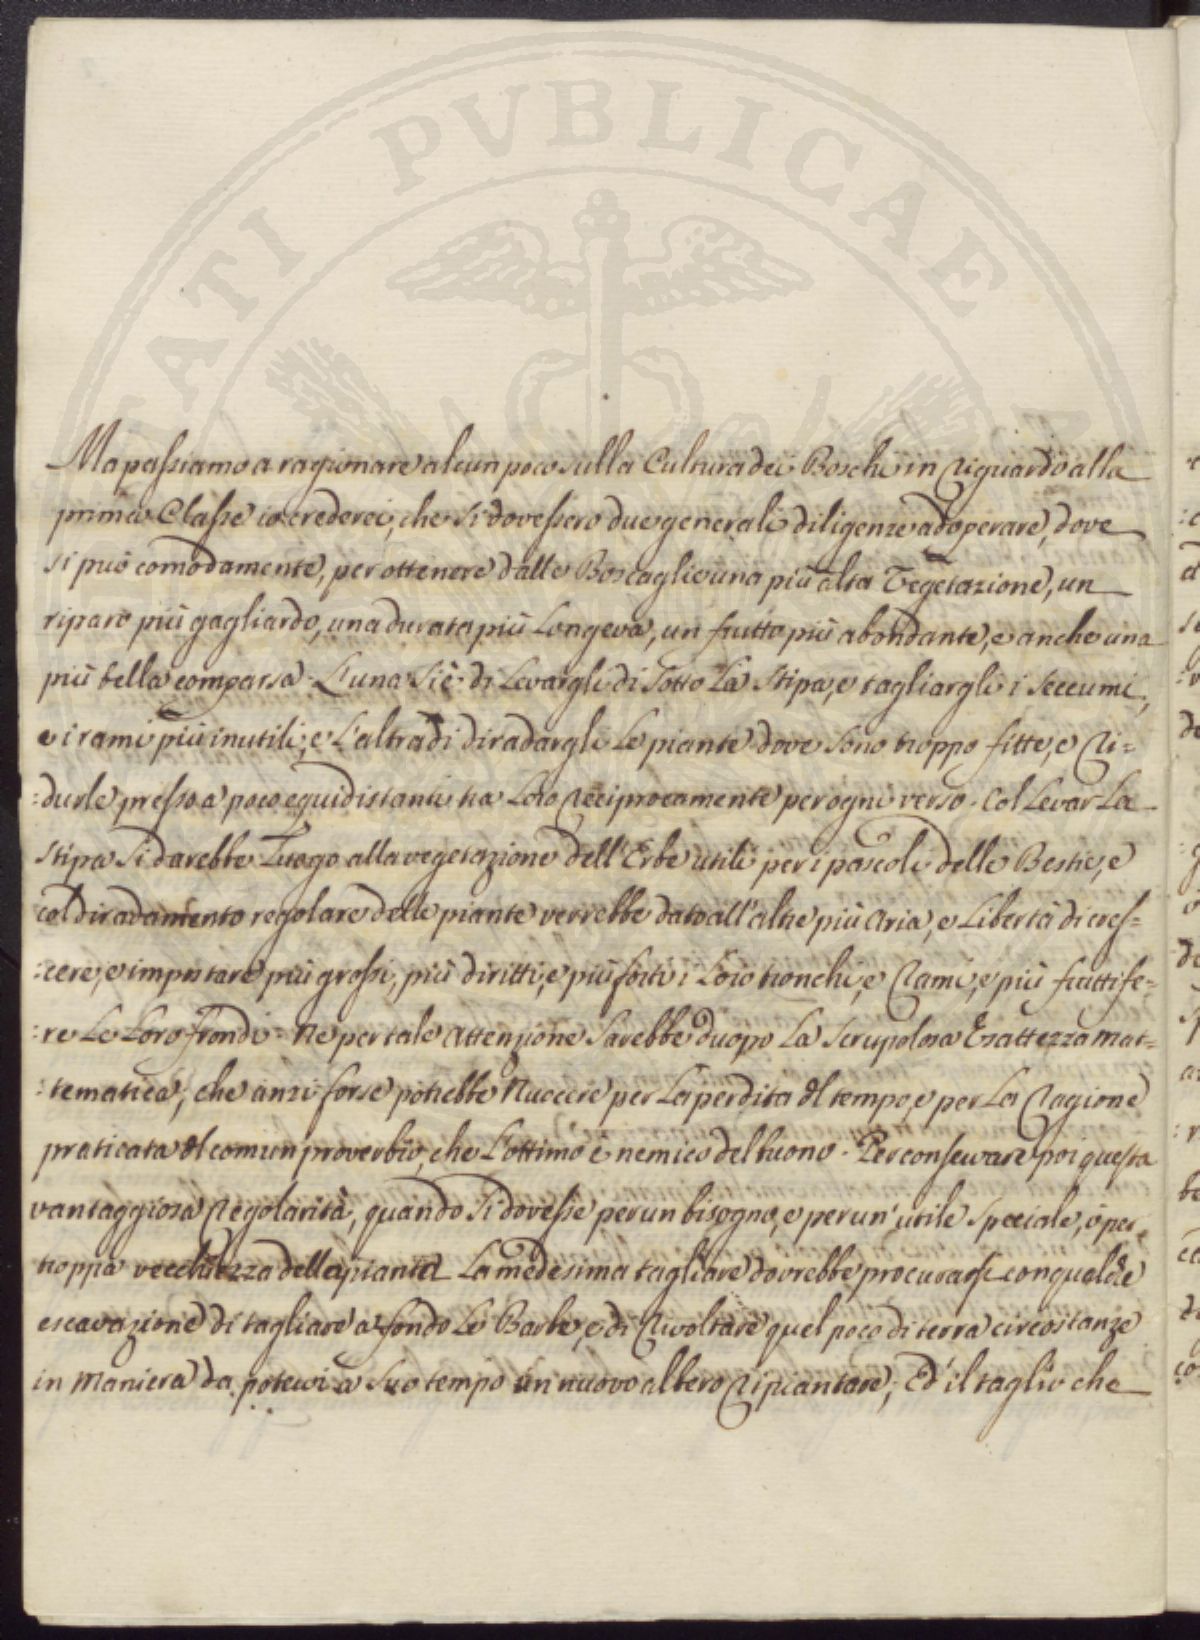 PROSPERITATI PVBLICAE AVGENDAE
Ma passiamo a ragionare alcun poco sulla Cultura dei Boschi in riguardo alla
prima Classe io crederei, che si dovessero due generali diligenze adoperare, dove
si può comodamente, per ottenere dalle Boscaglie una più alta Vegetazione, un
riparo più gagliardo, una durata più Longeva, un frutto più abondante, e anche una
più bella comparsa. L'una si è di Levargli di sotto La Stipa, e tagliargli i Seccumi,
e i rami più inutili, e L'altra di diradargli Le piante dove sono troppo fitte, e ri=
:durle presso a poco equidistanti tra Loro reciprocamente per ogni verso. Col Levar La
Stipa si darebbe Luogo alla vegetazione dell'Erbe utili per i pascoli delle Bestie, e
col diradamento regolare delle piante verrebbe dato all'altre più aria, e Libertà di cres=
:cere, e impostare più grossi, più diritti, e più forti i Loro tronchi, e rami, e più fruttife=
:re Le Loro frondi. Ne per tale attenzione sarebbe duopo La scrupolosa Esattezza mat=
:tematica; che anzi forse potrebbe Nuocere per La perdita del tempo, e per La ragione
praticata del comun proverbio, che L'ottimo è nemico del buono. Per conservare poi questa
vantaggiosa regolarità, quando si dovesse per un bisogno, e per un' utile speciale, ò per
troppa vecchiezza della pianta La medesima tagliare dovrebbe procurarsi con qualche
escavazione di tagliare a fondo Le Barbe, e di rivoltare quel poco di terra circostanze
in maniera da potervi a suo tempo un nuovo albero ripiantare; Ed il taglio che